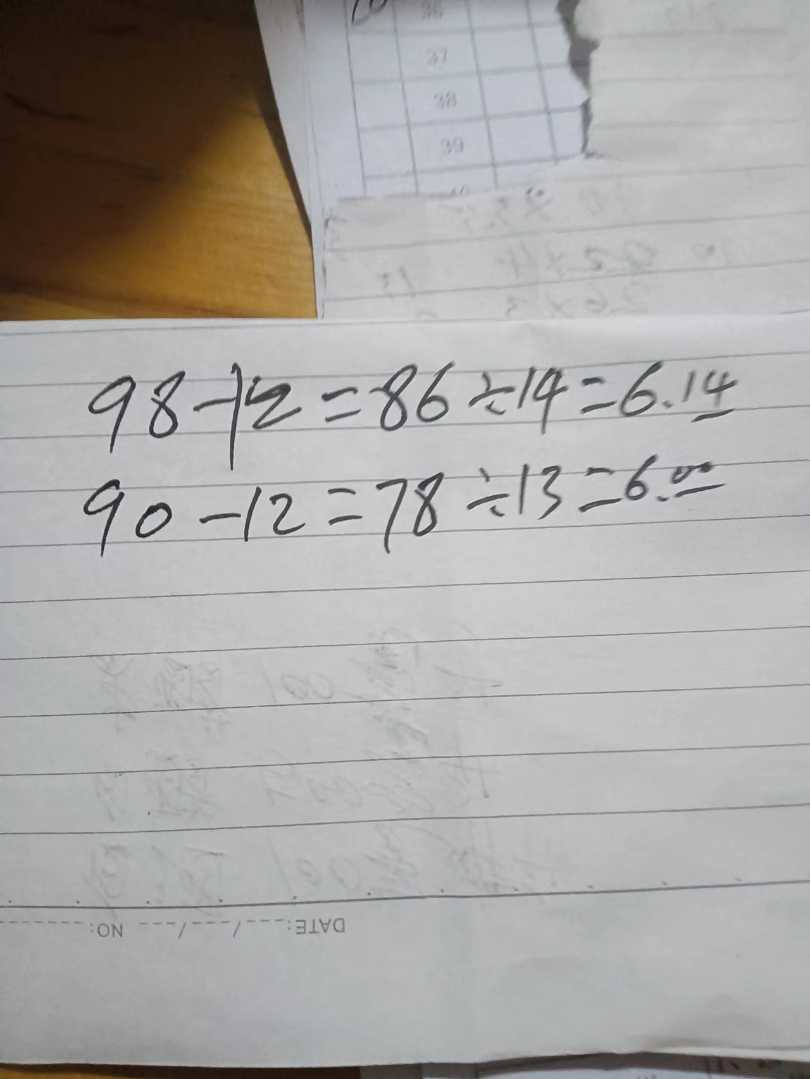 36
37
38
39
98-12=86÷14=6.14
90-12=78÷13=6.00
DATE:___/___/___ NO: